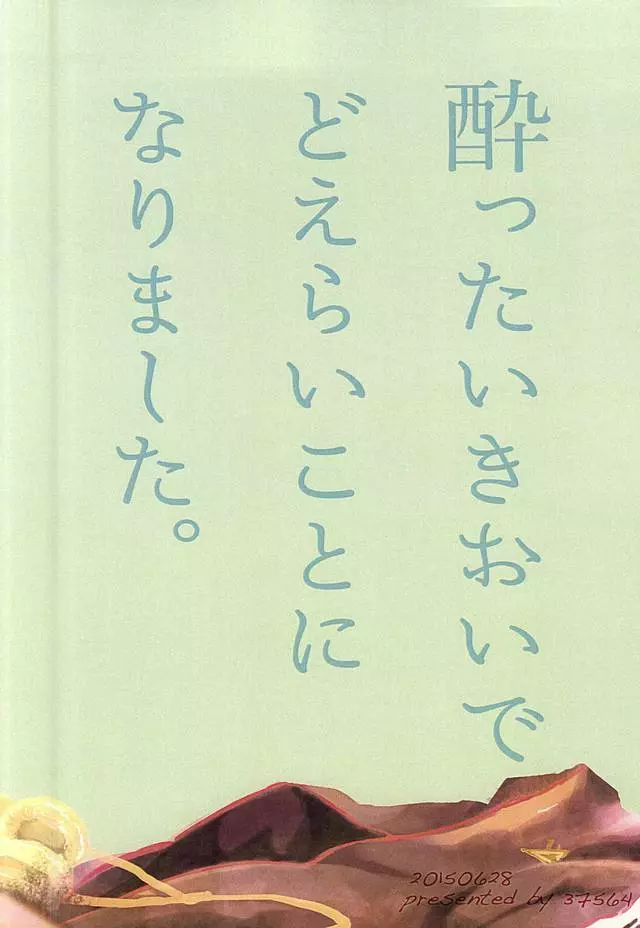 酔ったいきおいで
どえらいことに
なりました。
20150628
presented by 37564